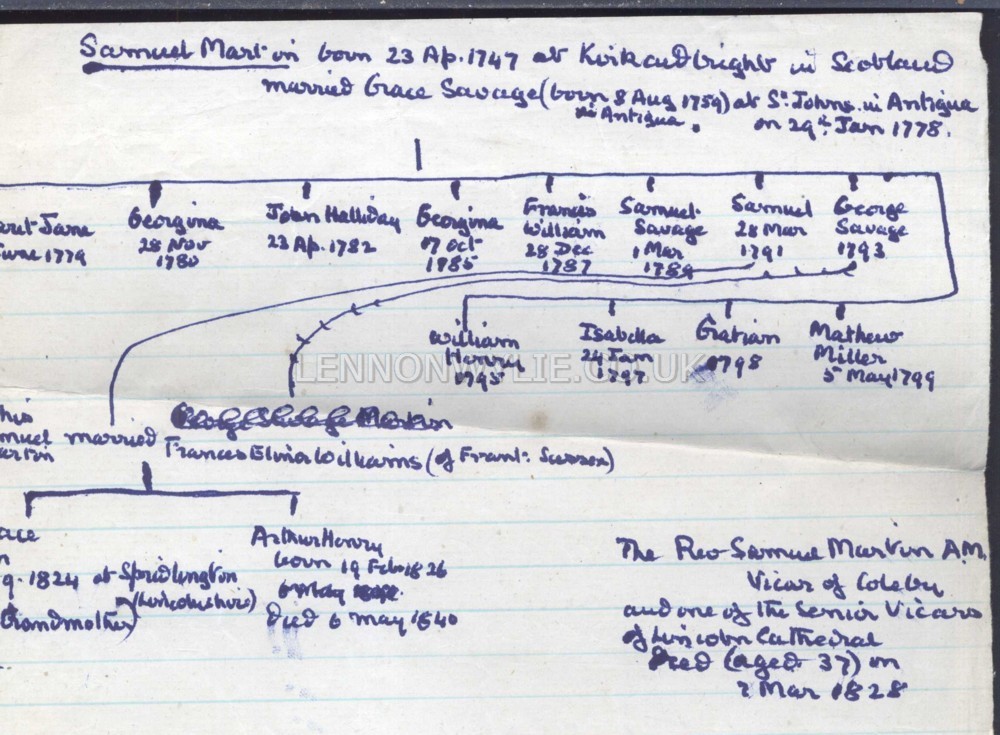 Samuel Martin born 23 Ap. 1747 at Kirkcudbright in Scotland
married Grace Savage (born 8 Aug 1759) at St Johns in Antigua
in Antigua. on 29th Jan 1778.
Jane Georgina John Halliday Georgina Francis Samuel Samuel George
June 1779 28 Nov 23 Ap. 1782 17 Oct William Savage 28 Mar Savage
1780 1785 28 Dec 1 Mar 1791 1793
1787 1789
William Isabella Gratian Mathew
Henry 24 Jan 1798 Miller
1795 1797 5 May 1799
LENNONWYLIE.CO.UK
Martin
his
muel married Frances Elvira Williams (of Frant: Sussex)
artin
ace Arthur Henry
n born 19 Feb 1826
9. 1824 at Spridlington
(Lincolnshire)
Grandmother) Died 6 May 1840
The Rev Samuel Martin A.M.
Vicar of Coleby
and one of the Senior Vicars
of Lincoln Cathedral
Died (aged 37) on
2 Mar 1828